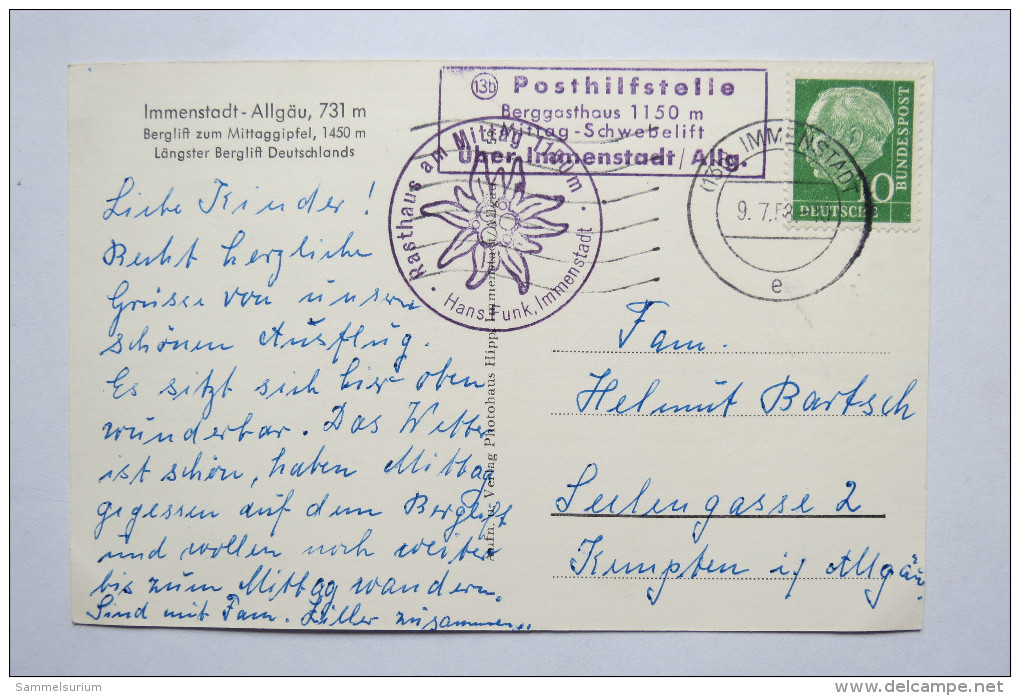 Immenstadt-Allgäu, 731 m
Berglift zum Mittaggipfel, 1450 m
Längster Berglift Deutschlands
Liebe Kinder!
Recht herzliche
Grüsse von unserm
schönen Ausflug.
Es sitzt sich hier oben
wunderbar. Das Wetter
ist schön, haben Mittag
gegessen auf dem Berglift
und wollen noch weiter
bis zum Mittag wandern.
Sind mit Fam. Liller zusammen.
13b Posthilfstelle
Berggasthaus 1150 m
Mittag-Schwebelift
über Immenstadt/Allg.
Rasthaus am Mittag 1150 m
Hans Funk, Immenstadt
Aufn. u. Verlag Photohaus Hipp, Immenstadt/Allgäu
(13b) IMMENSTADT
9. 7. 58
e
DEUTSCHE
BUNDESPOST
10
Fam.
Helmut Bartsch
Seelengasse 2
Kempten i/ Allgäu.
Sammelsurium
delcampe.net